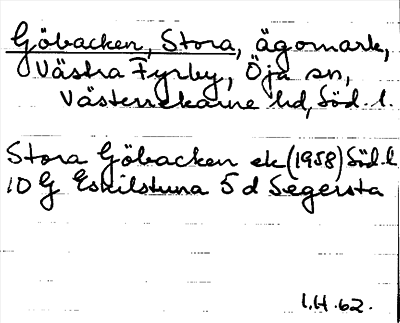 Göbacken, Stora, ägomark,
Västra Fyrby, Öja sn,
Västerrekarne hd, Söd. l.
Stora Göbacken ek (1958) Söd. l
10 G Eskilstuna 5 d Segersta
I.H. 62.